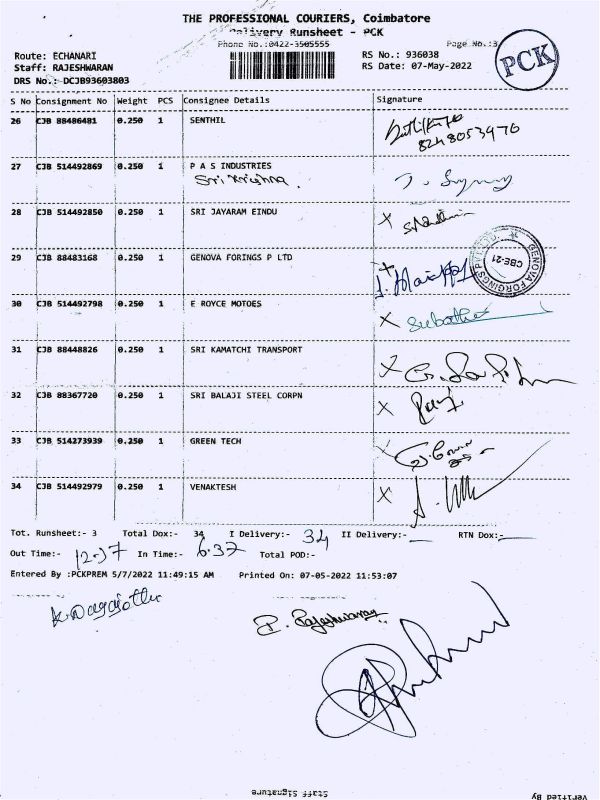 THE PROFESSIONAL COURIERS, Coimbatore
Delivery Runsheet - PCK
Phone No.:0422-3505555
Page No.:3
PCK
Route: ECHANARI
RS No.: 936038
Staff: RAJESHWARAN
RS Date: 07-May-2022
DRS No.:-DCJB93603803
S No Consignment No Weight PCS Consignee Details Signature
26 CJB 88486481 0.250 1 SENTHIL
8248053970
27 CJB 514492869 0.250 1 P A S INDUSTRIES
Sri Krishna.
28 CJB 514492850 0.250 1 SRI JAYARAM EINDU X
29 CJB 88483168 0.250 1 GENOVA FORINGS P LTD
GENOVA FORGINGS PVT. LTD. CBE-21
30 CJB 514492798 0.250 1 E ROYCE MOTOES X
31 CJB 88448826 0.250 1 SRI KAMATCHI TRANSPORT X
32 CJB 88367720 0.250 1 SRI BALAJI STEEL CORPN X
33 CJB 514273939 0.250 1 GREEN TECH
34 CJB 514492979 0.250 1 VENAKTESH X
Tot. Runsheet:- 3 Total Dox:- 34 I Delivery:- 34 II Delivery:- RTN Dox:-
Out Time:- In Time:- 6.37 Total POD:-
Entered By :PCKPREM 5/7/2022 11:49:15 AM Printed On: 07-05-2022 11:53:07
P. Rajeshwaran
Staff Signature
Verified By